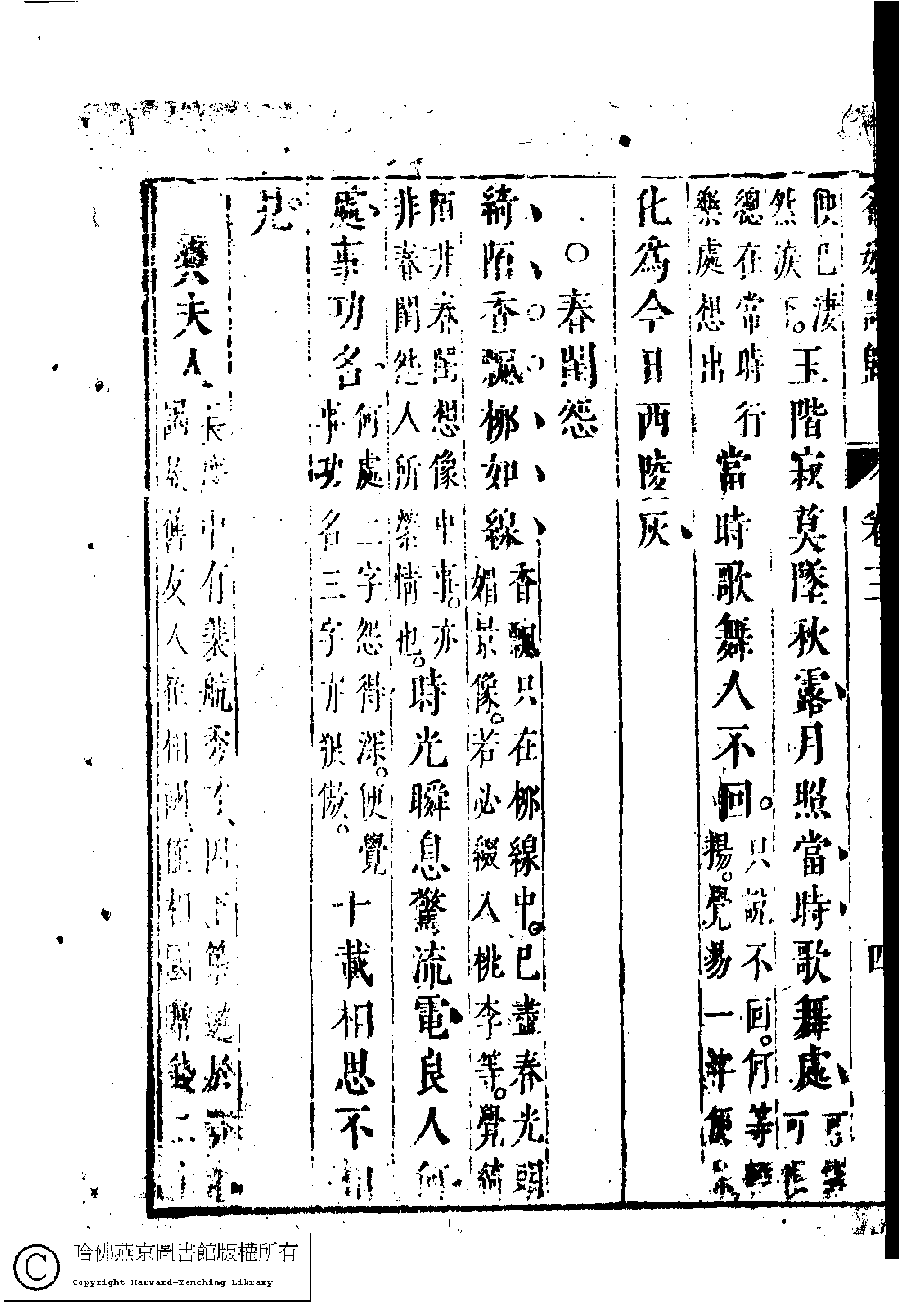 卷三
四
便已淒
然淚下。玉階寂莫墜秋露月照當時歌舞處
總在常時行
樂處想出
當時歌舞人不回。
只說不回。何等
揚。覺易一
化爲今日西陵灰
○春閨怨
綺陌香飄柳如線
香飄只在柳線中。已盡春光
媚景像。若必綴入桃李等。覺綺
陌非春閨想像中事。亦
非春閨怨人所縈情也。
時光瞬息驚流電良人何
處事功名
何處二字怨得深。便覺
事功名三字亦
十載相思不相
見
樊夫人
長慶中有裴航秀才、因下第遊於
謁故舊友人崔相國、值相國贈錢二十
哈佛燕京圖書館版權所有
Copyright Harvard-Yenching Library